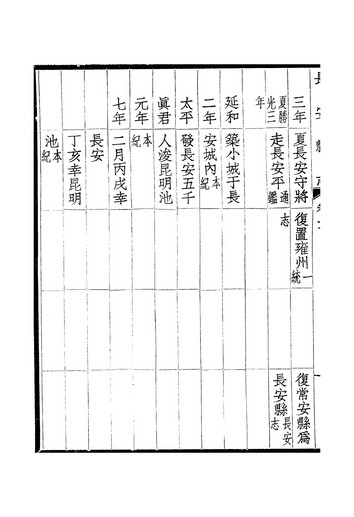 長安縣志
三年
夏勝光三年
夏長安守將走長安平通鑑
復置雍州一統志
復常安縣爲長安縣長安志
延和
築小城于長
二年
安城內本紀
太平
發長安五千
眞君
人浚昆明池
元年
本紀
七年
二月丙戌幸
長安
丁亥幸昆明
池本紀